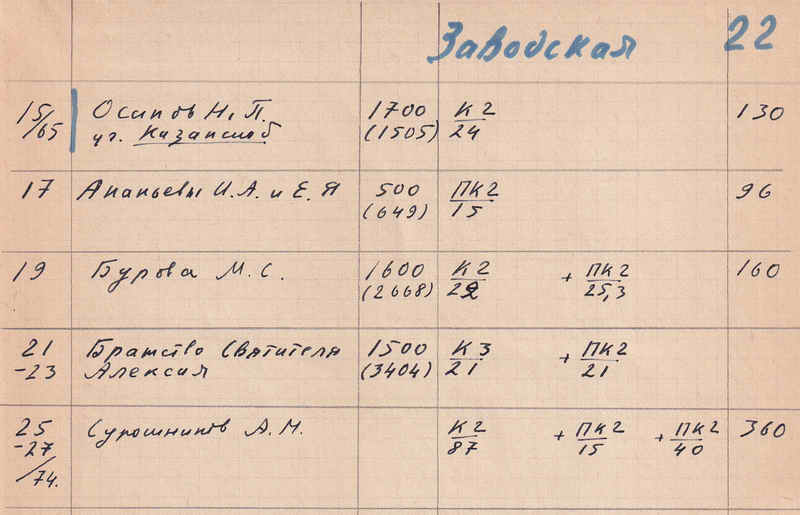 Заводская 22
15/65 Осипов Н. П. 1700 К2 130
уг. Казанской (1505) 24
17 Ананьевы И. А. и Е. Я 500 ПК2 96
(649) 15
19 Бурова М. С. 1600 К2 + ПК2 160
(2668) 22 25,3
21 Братство Святителя 1500 К3 + ПК2
-23 Алексия (3404) 21 21
25 Сурошников А. М. К2 + ПК2 + ПК2 360
-27 87 15 40
/74.